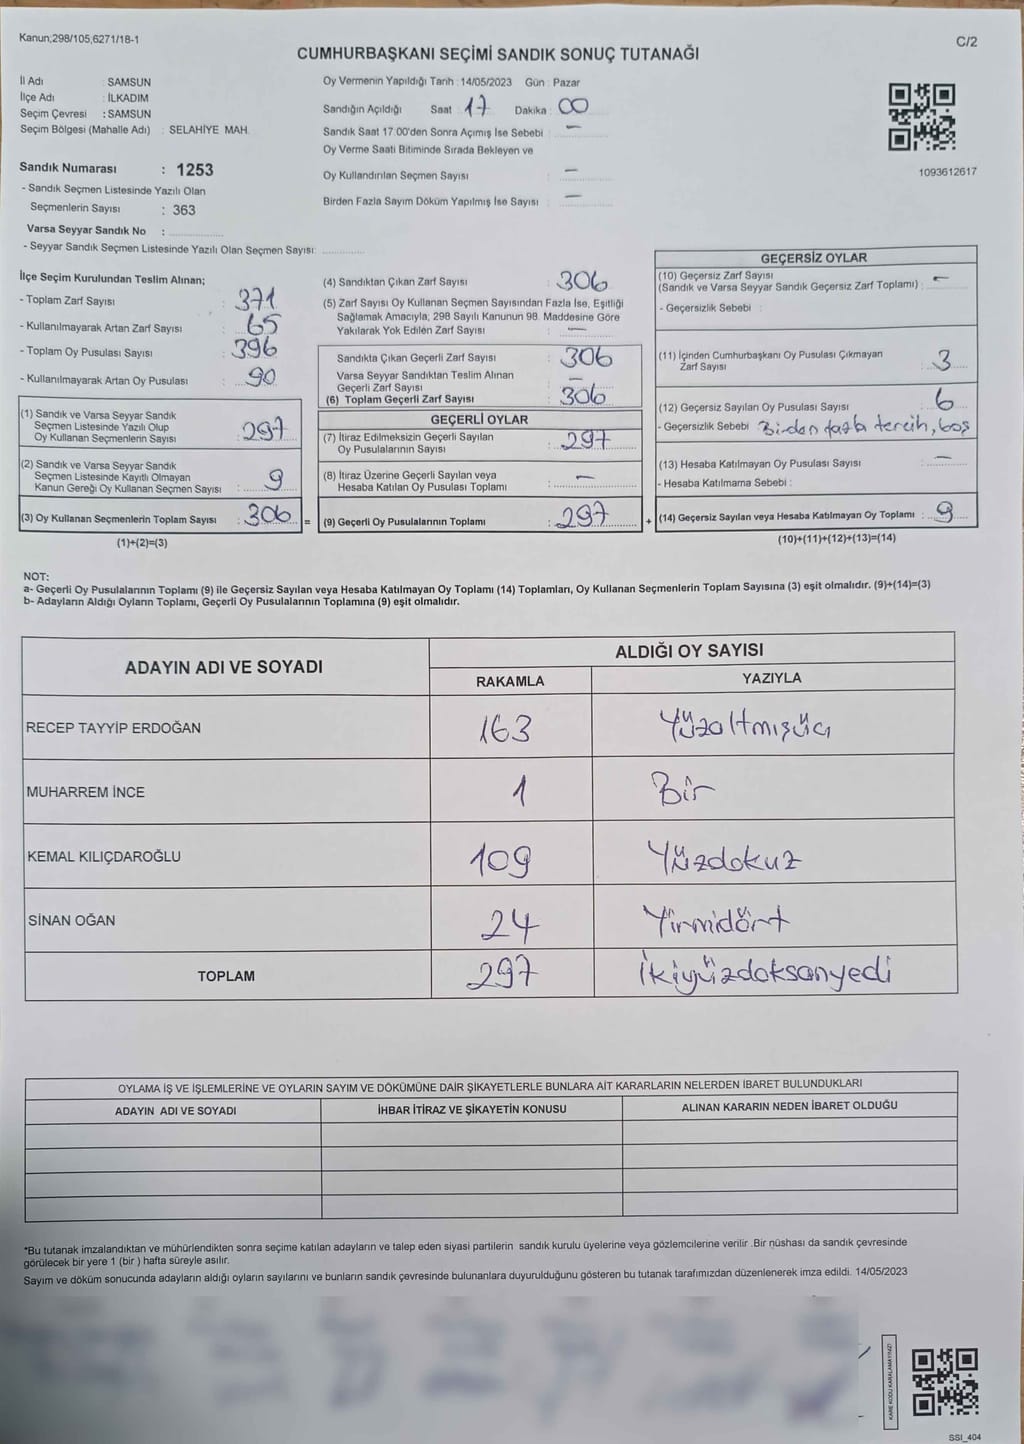 Kanun;298/105,6271/18-1
C/2
CUMHURBAŞKANI SEÇİMİ SANDIK SONUÇ TUTANAĞI
İl Adı : SAMSUN
İlçe Adı : İLKADIM
Seçim Çevresi : SAMSUN
Seçim Bölgesi (Mahalle Adı) : SELAHİYE MAH.
Sandık Numarası : 1253
- Sandık Seçmen Listesinde Yazılı Olan
Seçmenlerin Sayısı : 363
Varsa Seyyar Sandık No :
- Seyyar Sandık Seçmen Listesinde Yazılı Olan Seçmen Sayısı:
Oy Vermenin Yapıldığı Tarih : 14/05/2023 Gün : Pazar
Sandığın Açıldığı Saat : 17 Dakika : 00
Sandık Saat 17:00'den Sonra Açımış İse Sebebi : -
Oy Verme Saati Bitiminde Sırada Bekleyen ve
Oy Kullandırılan Seçmen Sayısı : -
Birden Fazla Sayım Döküm Yapılmış İse Sayısı : -
1093612617
İlçe Seçim Kurulundan Teslim Alınan;
- Toplam Zarf Sayısı : 371
- Kullanılmayarak Artan Zarf Sayısı : 65
- Toplam Oy Pusulası Sayısı : 396
- Kullanılmayarak Artan Oy Pusulası : 90
(1) Sandık ve Varsa Seyyar Sandık
Seçmen Listesinde Yazılı Olup
Oy Kullanan Seçmenlerin Sayısı : 297
(2) Sandık ve Varsa Seyyar Sandık
Seçmen Listesinde Kayıtlı Olmayan
Kanun Gereği Oy Kullanan Seçmen Sayısı : 9
(3) Oy Kullanan Seçmenlerin Toplam Sayısı : 306 =
(1)+(2)=(3)
(4) Sandıktan Çıkan Zarf Sayısı : 306
(5) Zarf Sayısı Oy Kullanan Seçmen Sayısından Fazla İse, Eşitliği
Sağlamak Amacıyla; 298 Sayılı Kanunun 98. Maddesine Göre
Yakılarak Yok Edilen Zarf Sayısı : -
Sandıkta Çıkan Geçerli Zarf Sayısı : 306
Varsa Seyyar Sandıktan Teslim Alınan
Geçerli Zarf Sayısı : -
(6) Toplam Geçerli Zarf Sayısı : 306
GEÇERLİ OYLAR
(7) İtiraz Edilmeksizin Geçerli Sayılan
Oy Pusulalarının Sayısı : 297
(8) İtiraz Üzerine Geçerli Sayılan veya
Hesaba Katılan Oy Pusulası Toplamı : -
(9) Geçerli Oy Pusulalarının Toplamı : 297 +
GEÇERSİZ OYLAR
(10) Geçersiz Zarf Sayısı
(Sandık ve Varsa Seyyar Sandık Geçersiz Zarf Toplamı) : -
- Geçersizlik Sebebi :
(11) İçinden Cumhurbaşkanı Oy Pusulası Çıkmayan
Zarf Sayısı : 3
(12) Geçersiz Sayılan Oy Pusulası Sayısı : 6
- Geçersizlik Sebebi : Birden fazla tercih, boş
(13) Hesaba Katılmayan Oy Pusulası Sayısı : -
- Hesaba Katılmama Sebebi :
(14) Geçersiz Sayılan veya Hesaba Katılmayan Oy Toplamı : 9
(10)+(11)+(12)+(13)=(14)
NOT:
a- Geçerli Oy Pusulalarının Toplamı (9) ile Geçersiz Sayılan veya Hesaba Katılmayan Oy Toplamı (14) Toplamları, Oy Kullanan Seçmenlerin Toplam Sayısına (3) eşit olmalıdır. (9)+(14)=(3)
b- Adayların Aldığı Oyların Toplamı, Geçerli Oy Pusulalarının Toplamına (9) eşit olmalıdır.
ADAYIN ADI VE SOYADI
ALDIĞI OY SAYISI
RAKAMLA YAZIYLA
RECEP TAYYİP ERDOĞAN 163 Yüzaltmışüç
MUHARREM İNCE 1 Bir
KEMAL KILIÇDAROĞLU 109 Yüzdokuz
SİNAN OĞAN 24 Yirmidört
TOPLAM 297 İkiyüzdoksanyedi
OYLAMA İŞ VE İŞLEMLERİNE VE OYLARIN SAYIM VE DÖKÜMÜNE DAİR ŞİKAYETLERLE BUNLARA AİT KARARLARIN NELERDEN İBARET BULUNDUKLARI
ADAYIN ADI VE SOYADI İHBAR İTİRAZ VE ŞİKAYETİN KONUSU ALINAN KARARIN NEDEN İBARET OLDUĞU
*Bu tutanak imzalandıktan ve mühürlendikten sonra seçime katılan adayların ve talep eden siyasi partilerin sandık kurulu üyelerine veya gözlemcilerine verilir .Bir nüshası da sandık çevresinde
görülecek bir yere 1 (bir ) hafta süreyle asılır.
Sayım ve döküm sonucunda adayların aldığı oyların sayılarını ve bunların sandık çevresinde bulunanlara duyurulduğunu gösteren bu tutanak tarafımızdan düzenlenerek imza edildi. 14/05/2023
KARE KODU KARALAMAYINIZ!
SSI_404